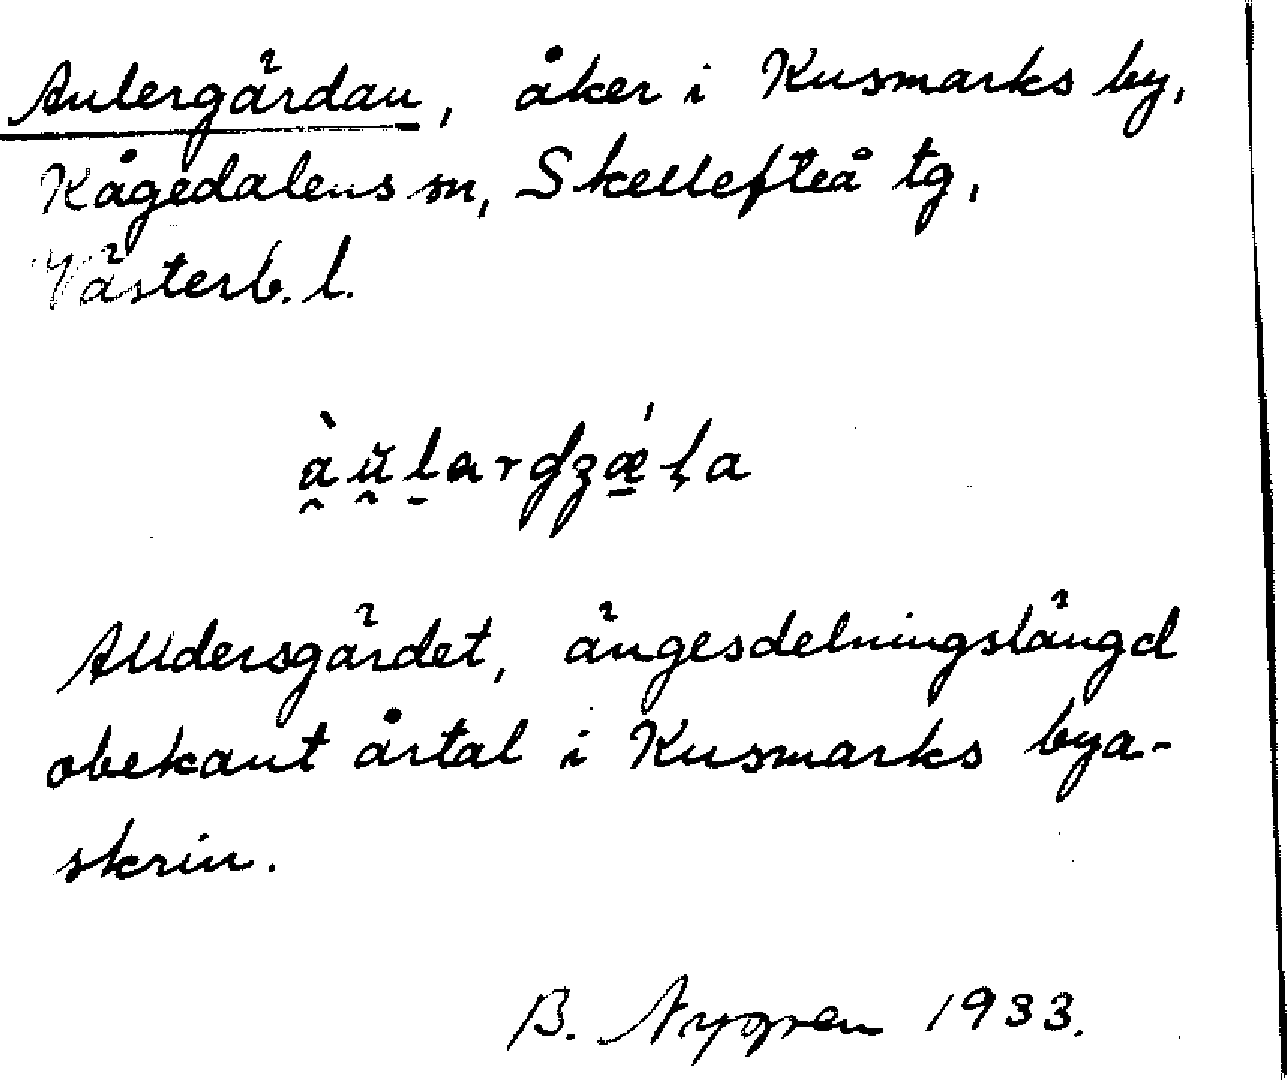 Aulergärdan, åker i Kusmarks by,
Kågedalens sn, Skellefteå tg,
Västerb. l.
àŭ̯lardʒǽḷa
Alldersgärdet, ängesdelningslängd
obekant årtal i Kusmarks bya-
skrin.
B. Nygren 1933.